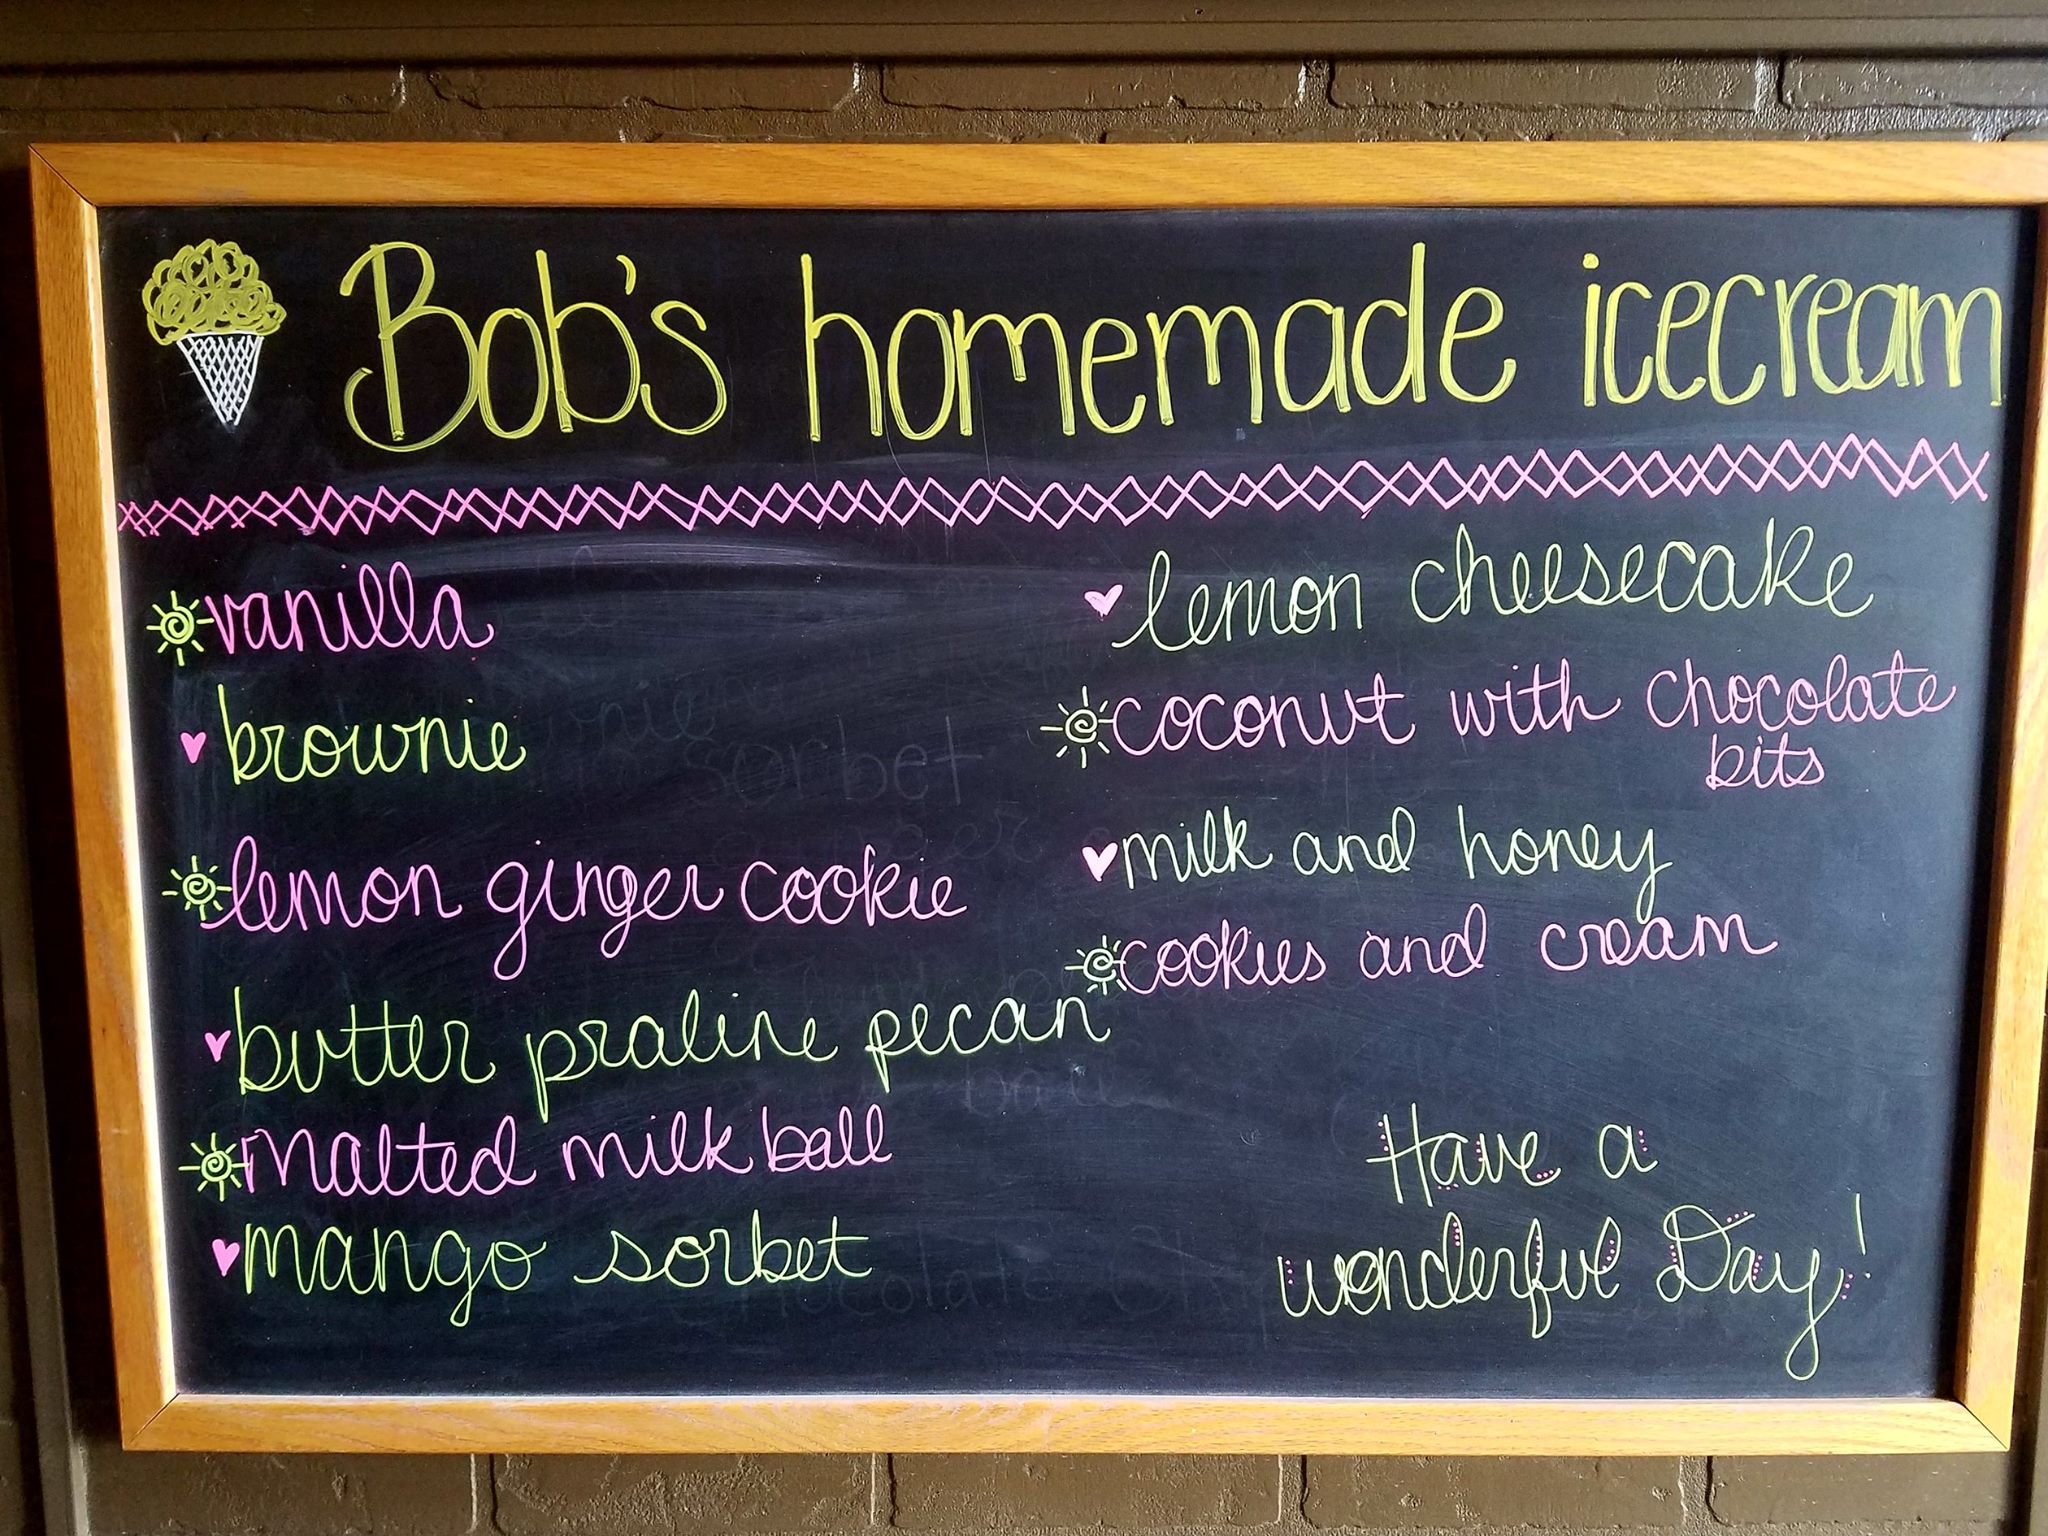 Bob's homemade icecream
vanilla
brownie
lemon ginger cookie
butter praline pecan
malted milk ball
mango sorbet
lemon cheesecake
coconut with chocolate
bits
milk and honey
cookies and cream
Have a
wonderful Day!